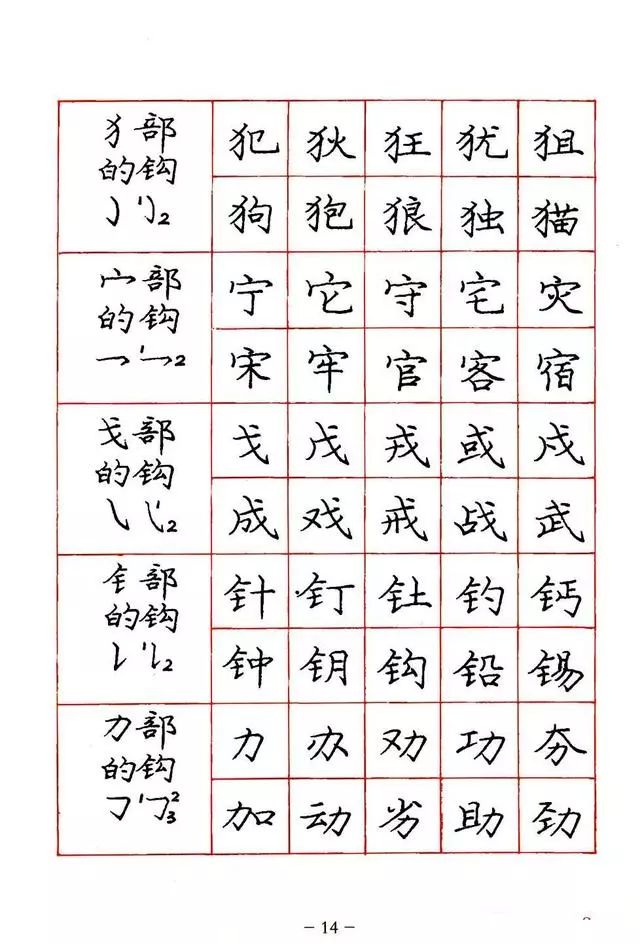 犭部
的钩
犯 狄 狂 犹 狙
狗 狍 狼 独 猫
宀部
的钩
宁 它 守 宅 灾
宋 牢 官 客 宿
戈部
的钩
戈 戊 戎 或 戍
成 戏 戒 战 武
钅部
的钩
针 钉 钍 钓 钙
钟 钥 钩 铅 锡
力部
的钩
力 办 劝 功 夯
加 动 劣 助 劲
- 14 -